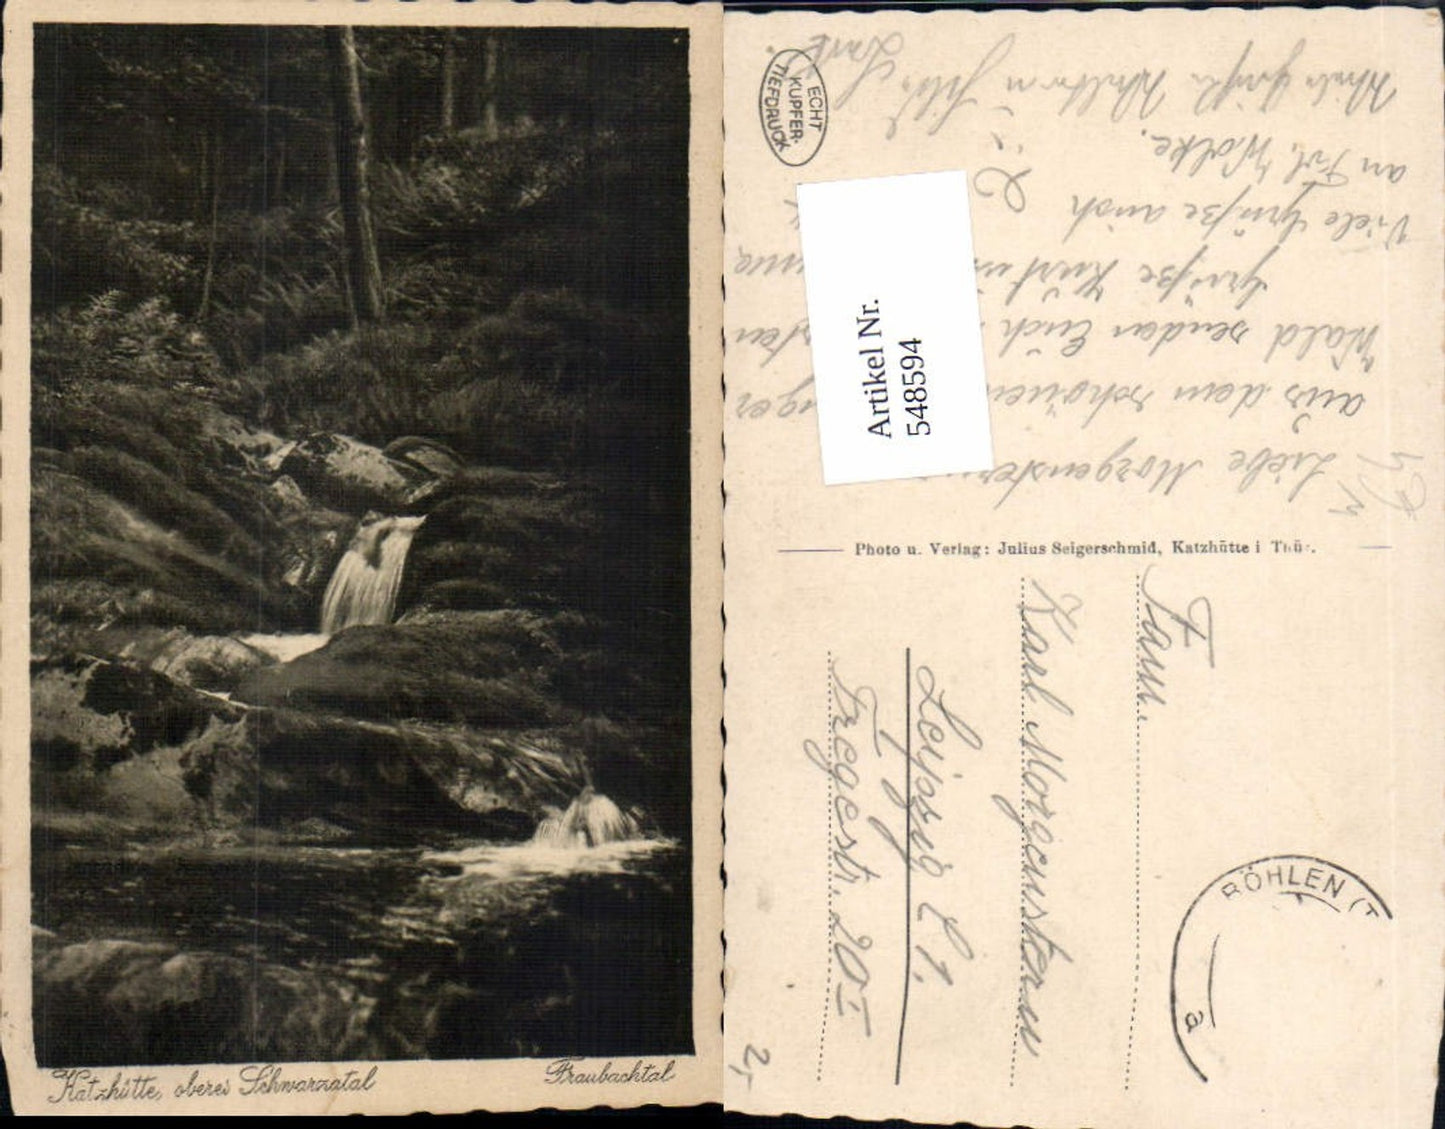 Katzhütte, oberes Schwarzatal
Fraubachtal
ECHT
KUPFER-
TIEFDRUCK
Artikel Nr.
548594
Liebe Morgenstern
aus dem schönen
Wald senden Euch
Grüße Kurt u.
Viele Grüße auch
an Frl. Wolke.
Viele Grüße
Photo u. Verlag: Julius Seigerschmid, Katzhütte i Thür.
Fam.
Karl Morgenstern
Leipzig C 1.
Fregestr. 20 I
BÖHLEN (T
a
2,-